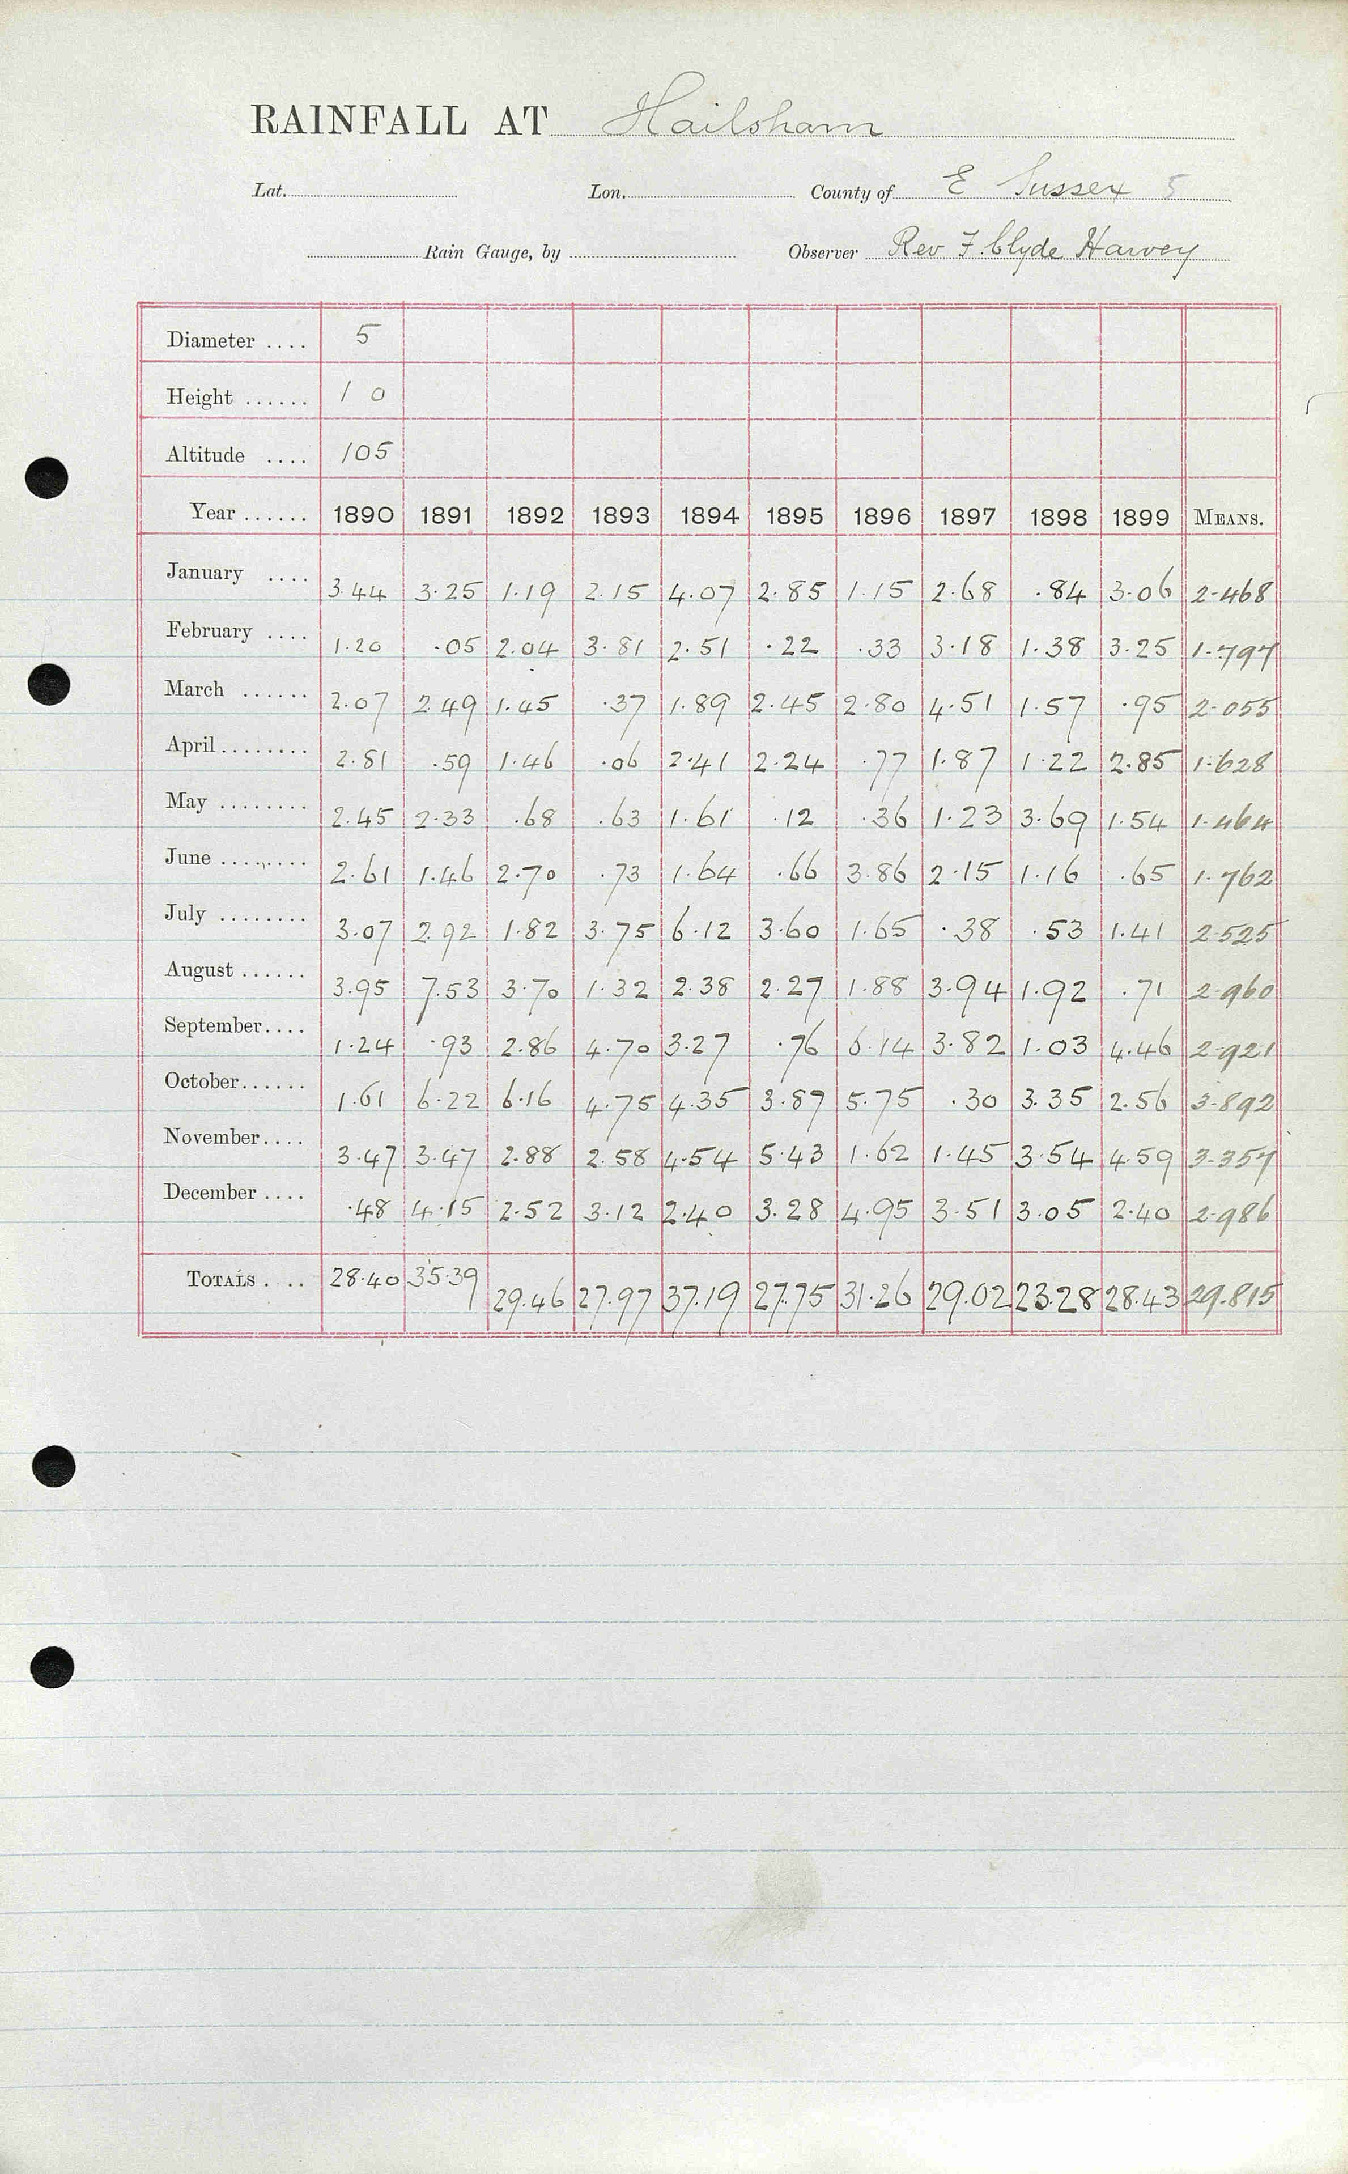 RAINFALL AT Hailsham
Lat. Lon. County of E Sussex 5
Rain Gauge, by Observer Rev F. Clyde Harvey
Diameter .... 5
Height ...... 1 0
Altitude .... 105
Year ...... 1890 1891 1892 1893 1894 1895 1896 1897 1898 1899 MEANS.
January .... 3.44 3.25 1.19 2.15 4.07 2.85 1.15 2.68 .84 3.06 2.468
February .... 1.20 .05 2.04 3.81 2.51 .22 .33 3.18 1.38 3.25 1.797
March ...... 2.07 2.49 1.45 .37 1.89 2.45 2.80 4.51 1.57 .95 2.055
April ........ 2.81 .59 1.46 .06 2.41 2.24 .77 1.87 1.22 2.85 1.628
May ........ 2.45 2.33 .68 .63 1.61 .12 .36 1.23 3.69 1.54 1.464
June ........ 2.61 1.46 2.70 .73 1.64 .66 3.86 2.15 1.16 .65 1.762
July ........ 3.07 2.92 1.82 3.75 6.12 3.60 1.65 .38 .53 1.41 2.525
August ...... 3.95 7.53 3.70 1.32 2.38 2.27 1.88 3.94 1.92 .71 2.960
September.... 1.24 .93 2.86 4.70 3.27 .76 6.14 3.82 1.03 4.46 2.921
October...... 1.61 6.22 6.16 4.75 4.35 3.87 5.75 .30 3.35 2.56 3.892
November.... 3.47 3.47 2.88 2.58 4.54 5.43 1.62 1.45 3.54 4.59 3.357
December .... .48 4.15 2.52 3.12 2.40 3.28 4.95 3.51 3.05 2.40 2.986
TOTALS .... 28.40 35.39 29.46 27.97 37.19 27.75 31.26 29.02 23.28 28.43 29.815